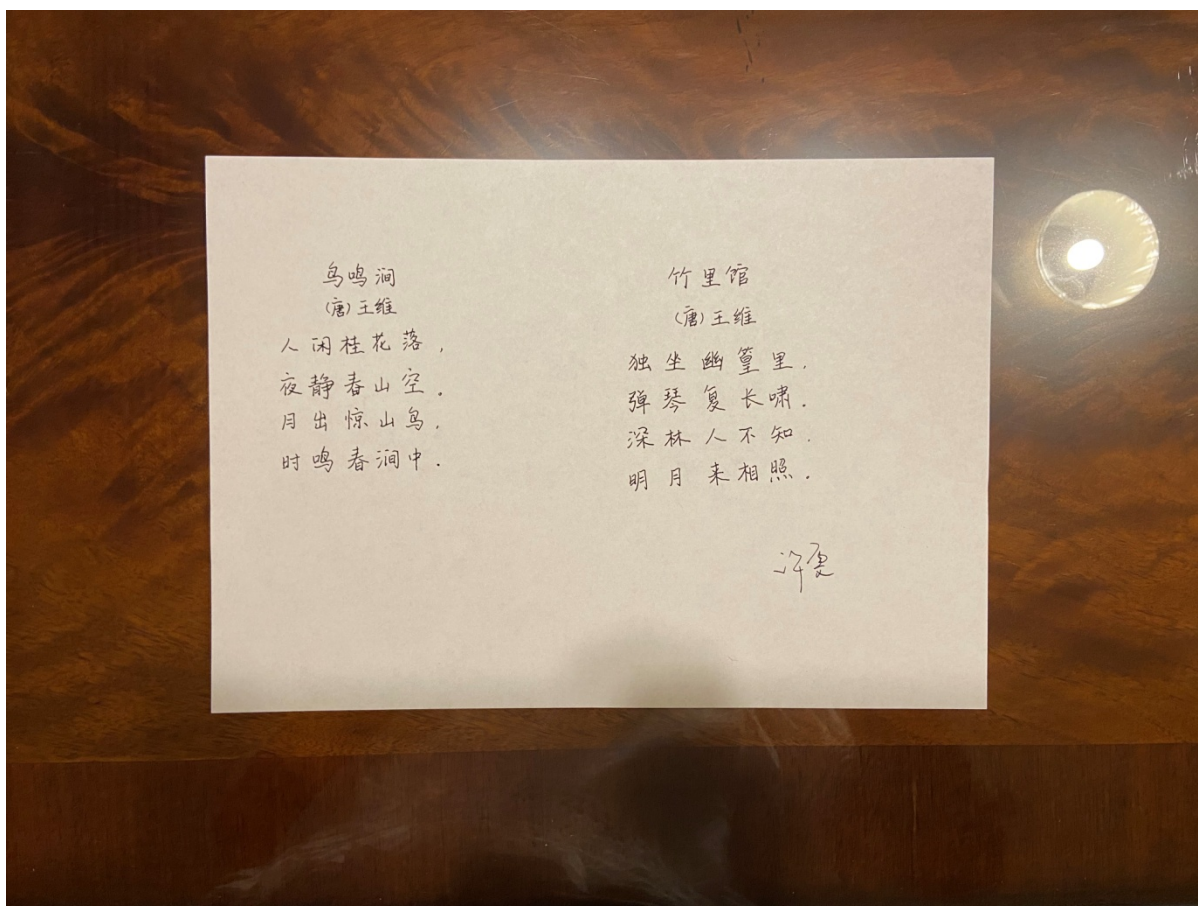 鸟鸣涧
(唐)王维
人闲桂花落,
夜静春山空.
月出惊山鸟,
时鸣春涧中.
竹里馆
(唐)王维
独坐幽篁里,
弹琴复长啸.
深林人不知,
明月来相照.